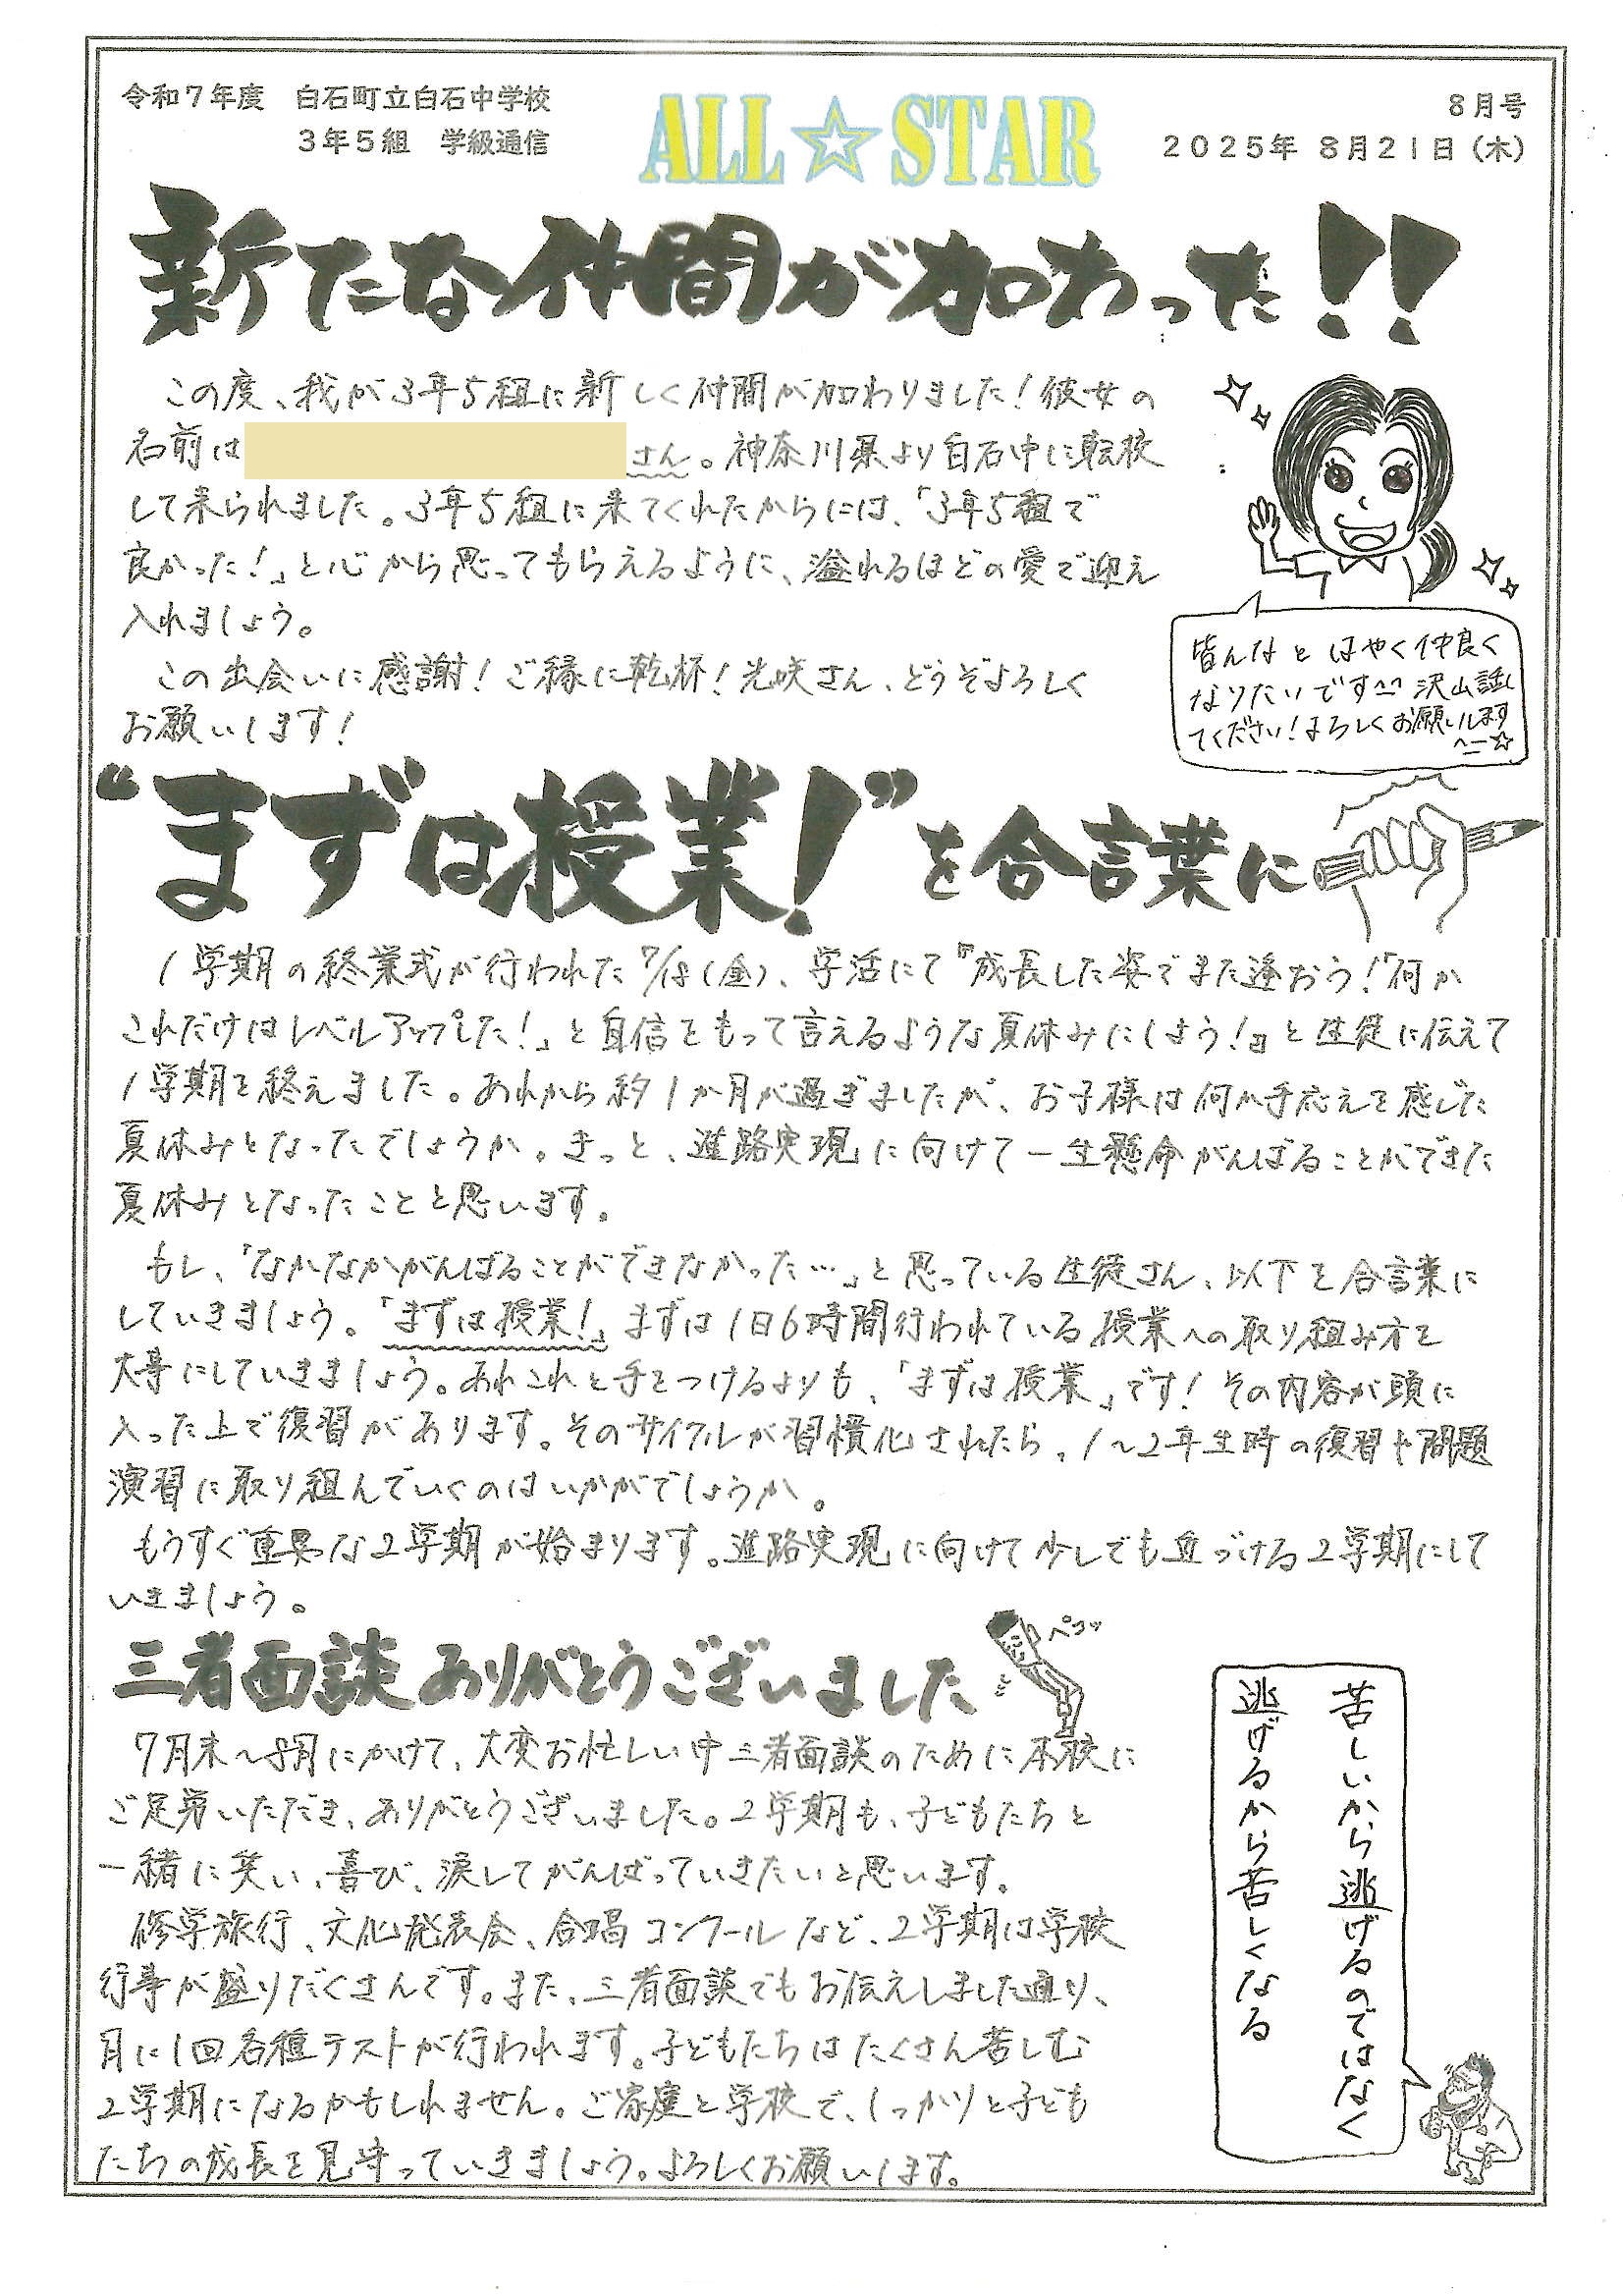 令和７年度　白石町立白石中学校
３年５組　学級通信
ALL☆STAR
８月号
２０２５年 ８月２１日（木）
新たな仲間が加わった!!
この度、我が３年５組に新しく仲間が加わりました！彼女の
名前は
さん。神奈川県より白石中に転校
して来られました。３年５組に来てくれたからには、「３年５組で
良かった！」と心から思ってもらえるように、溢れるほどの愛で迎え
入れましょう。
この出会いに感謝！ご縁に乾杯！光咲さん、どうぞよろしく
お願いします！
皆んなとはやく仲良く
なりたいです^^沢山話し
てください！よろしくお願いします
^ー☆
“まずは授業！”を合言葉に
１学期の終業式が行われた7/18（金）、学活にて『成長した姿でまた逢おう！「何か
これだけはレベルアップした！」と自信をもって言えるような夏休みにしよう！』と生徒に伝えて
１学期を終えました。あれから約１か月が過ぎましたが、お子様は何か手応えを感じた
夏休みとなったでしょうか。きっと、進路実現に向けて一生懸命がんばることができた
夏休みとなったことと思います。
もし、「なかなかがんばることができなかった…」と思っている生徒さん、以下を合言葉に
していきましょう。「まずは授業！」まずは１日６時間行われている授業への取り組み方を
大事にしていきましょう。あれこれと手をつけるよりも、「まずは授業」です！その内容が頭に
入った上で復習があります。そのサイクルが習慣化されたら、１～２年生時の復習や問題
演習に取り組んでいくのはいかがでしょうか。
もうすぐ重要な２学期が始まります。進路実現に向けて少しでも近づける２学期にして
いきましょう。
三者面談ありがとうございました
ペコッ
７月末～８月にかけて、大変お忙しい中三者面談のために本校に
ご足労いただき、ありがとうございました。２学期も、子どもたちと
一緒に笑い、喜び、涙してがんばっていきたいと思います。
修学旅行、文化発表会、合唱コンクールなど、２学期は学校
行事が盛りだくさんです。また、三者面談でもお伝えしました通り、
月に１回各種テストが行われます。子どもたちはたくさん苦しむ
２学期になるかもしれません。ご家庭と学校で、しっかりと子ども
たちの成長を見守っていきましょう。よろしくお願いします。
苦しいから逃げるのではなく
逃げるから苦しくなる